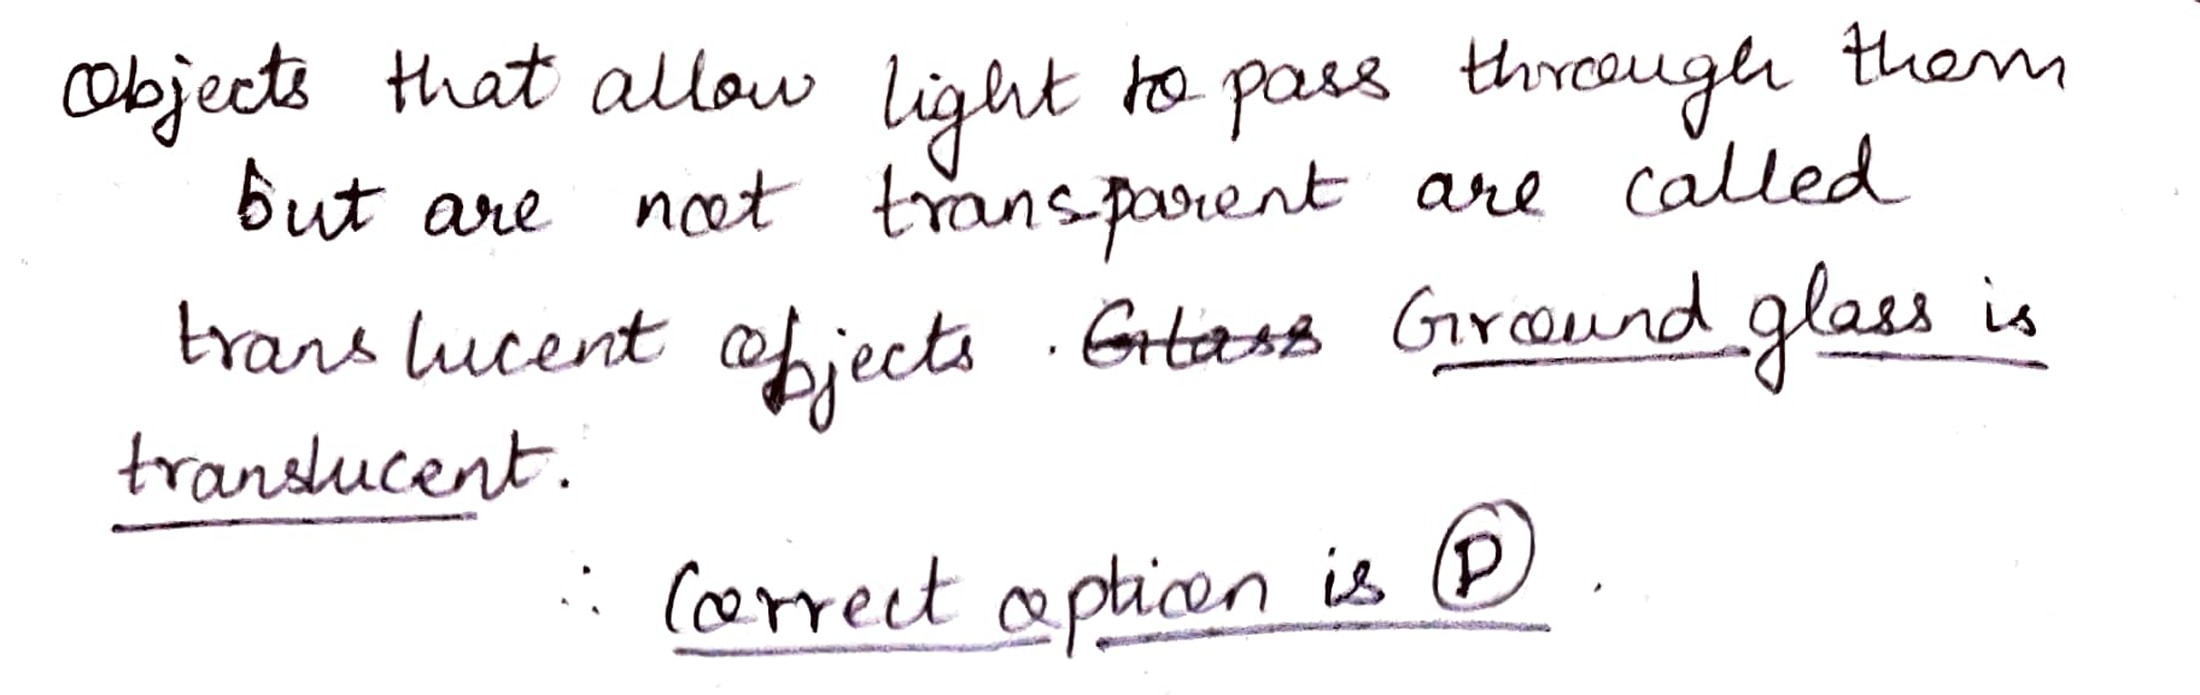 Objects that allow light to pass through them
but are not transparent are called
translucent objects. Glass Ground glass is
translucent.
∴ Correct option is D.